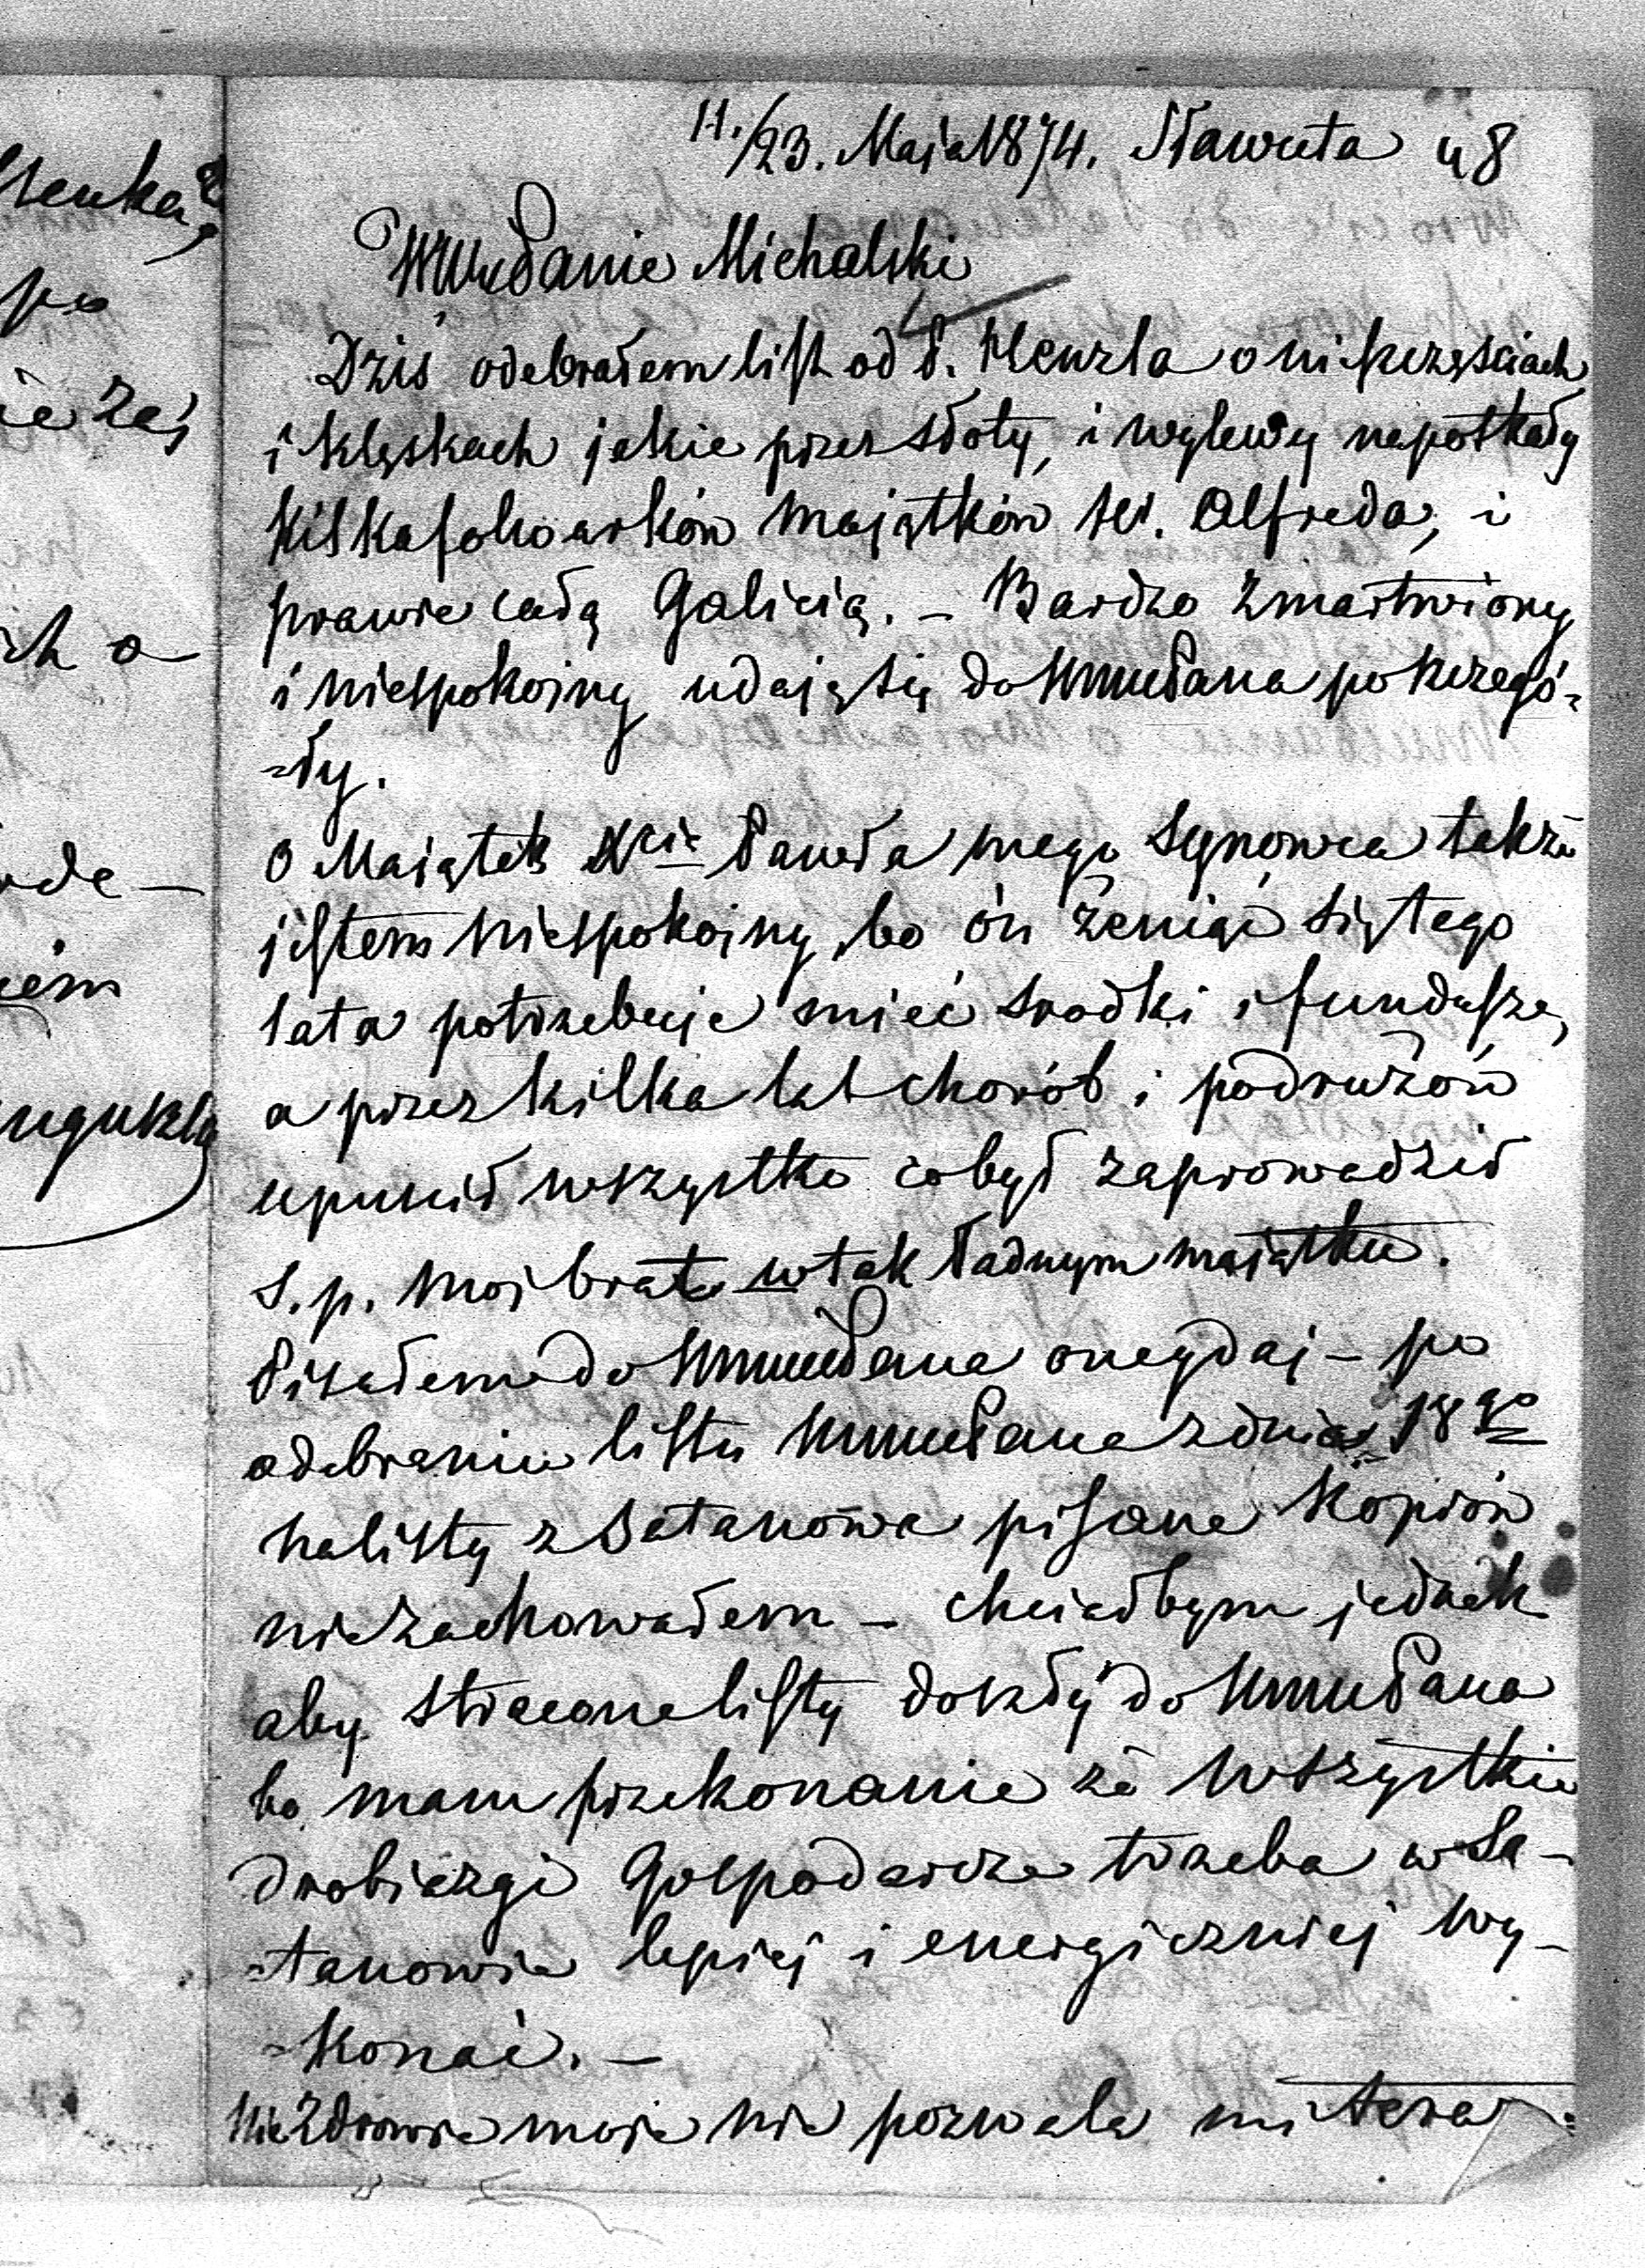 11./23. Maja 1874. Sławuta 48
WWMPanie Michalski
Dziś odebrałem list od P. Henzla o nieszczęściach
i klęskach jakie przez słoty, i wylewy napotkały
kilka folwarków majątków Hr. Alfreda, i
prawie całą Galicią. – Bardzo zmartwiony
i niespokojny udaję się do WWMPana po szczegó-
-ły.
O Majątek Xcia Pawła mego Synowca także
jestem niespokojny, bo ón żeniąc się tego
lata potrzebuje mieć srodki i fundusze,
a przez kilka lat chorób i podrużów
upuścił wszystko co był zaprowadził
S. p. moj brat w tak ładnym majątku.
Pisałem do WWMPana onegdaj – po
odebraniu listu WWMPana z dnia 18go
na listy z Satanowa pisane Kopiów
nie zachowałem – chciałbym jednak
aby stracone listy doszły do WWMPana
bo mam przekonanie że wszystkie
drobiazgi Gospodarcze trzeba w Sa-
-tanowie lepiej i energiczniej wy-
-konać. –
Nie Zdrowie moje nie pozwala mi teraz
senka
po
ie zaś
ich o
em